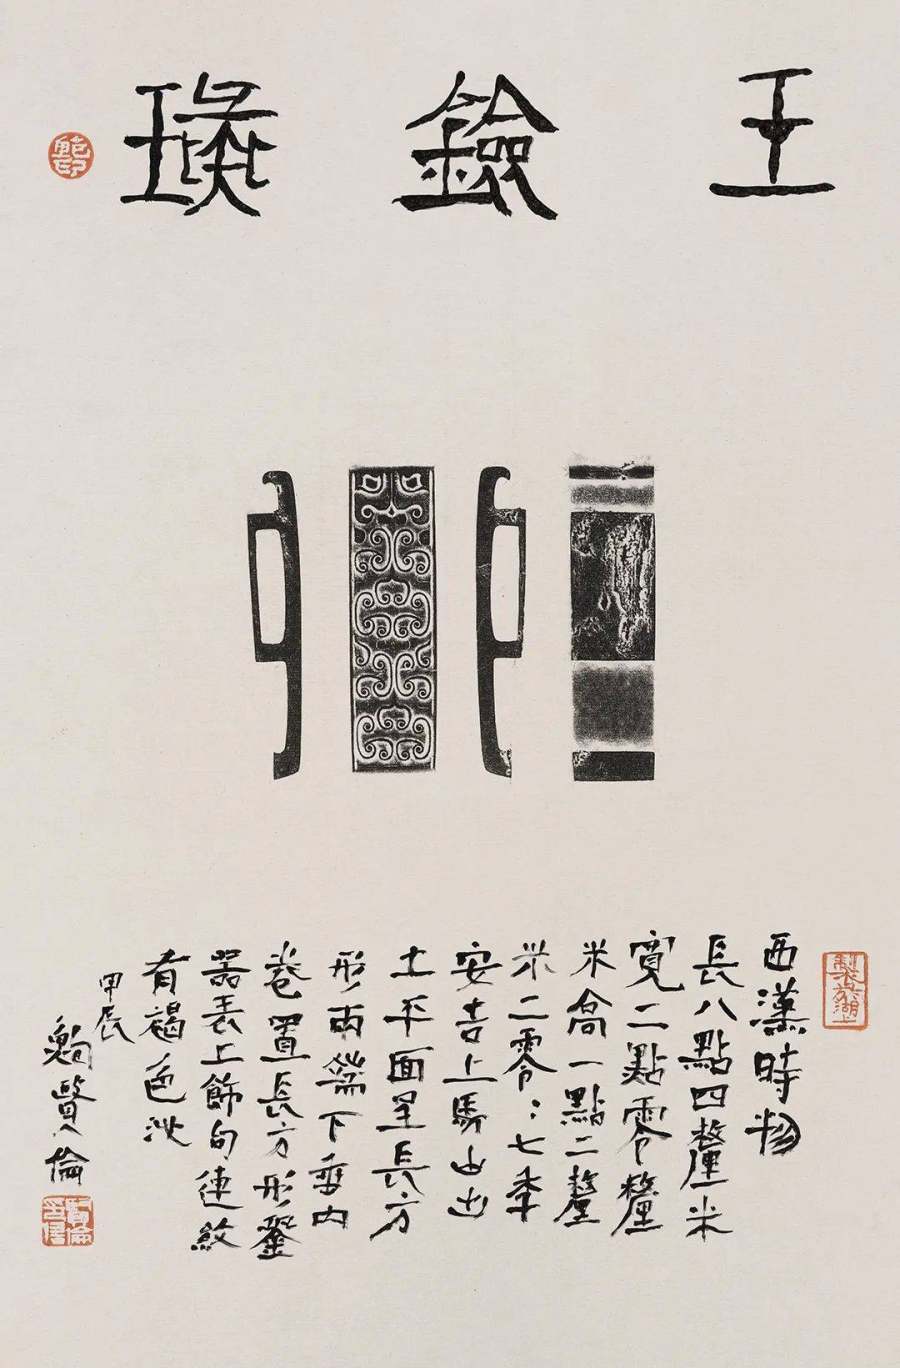 玉鐱璏
鮑印
製於湖上
西漢時物
長八點四釐米
寬二點零釐
米高一點二釐
米二零：七季
安吉上馬山出
土平面呈長方
形兩端下垂內
卷置長方形銎
器表上飾勾連紋
有褐色沁
甲辰
鮑賢倫